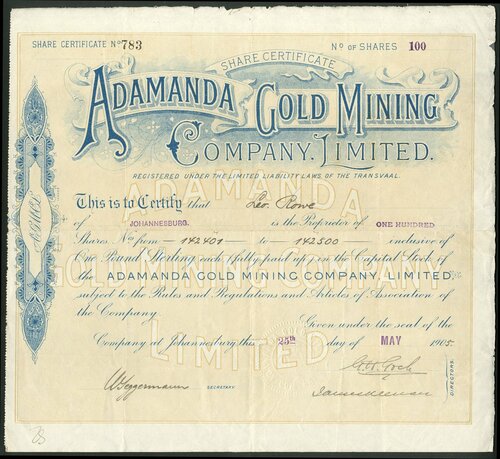 SHARE CERTIFICATE Nº 783
Nº OF SHARES 100
SHARE CERTIFICATE
ADAMANDA GOLD MINING
COMPANY, LIMITED.
REGISTERED UNDER THE LIMITED LIABILITY LAWS, OF THE TRANSVAAL.
ADAMANDA
This is to Certify that Leo. Rowe
of JOHANNESBURG. is the Proprietor of ONE HUNDRED
Shares Nº from 142401 to 142500 inclusive of
One Pound Sterling each (fully paid up) on the Capital Stock of
the ADAMANDA GOLD MINING COMPANY, LIMITED,
GOLD MINING COMPANY
subject to the Rules and Regulations and Articles of Association of
the Company.
Given under the seal of the
LIMITED
Company at Johannesburg this 25th of MAY 1905
SECRETARY
DIRECTORS.